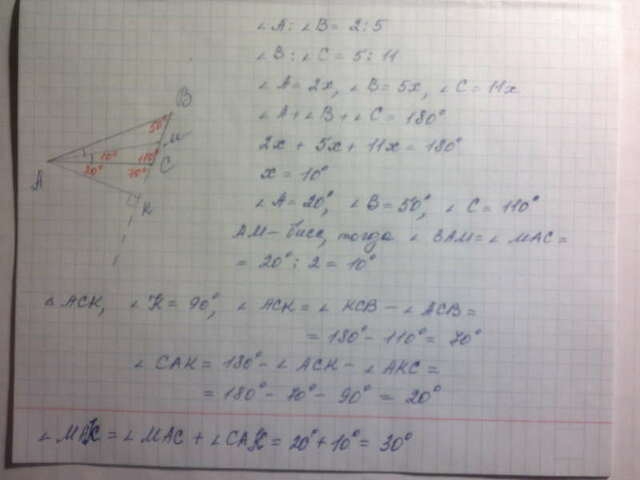 ∠A : ∠B = 2 : 5
∠B : ∠C = 5 : 11
∠A = 2x, ∠B = 5x, ∠C = 11x
∠A + ∠B + ∠C = 180°
2x + 5x + 11x = 180°
x = 10°
∠A = 20°, ∠B = 50°, ∠C = 110°
AM - бисс, тогда ∠BAM = ∠MAC =
= 20° : 2 = 10°
B
50°
M
10°
110°
C
20°
70°
A
K
△ACK, ∠K = 90°, ∠ACK = ∠KCB - ∠ACB =
= 180° - 110° = 70°
∠CAK = 180° - ∠ACK - ∠AKC =
= 180° - 70° - 90° = 20°
∠MAK = ∠MAC + ∠CAK = 20° + 10° = 30°